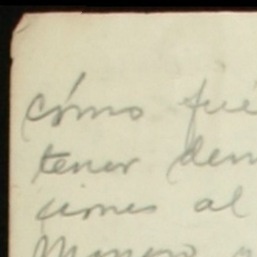 cómo fué
tener dem
ciones al